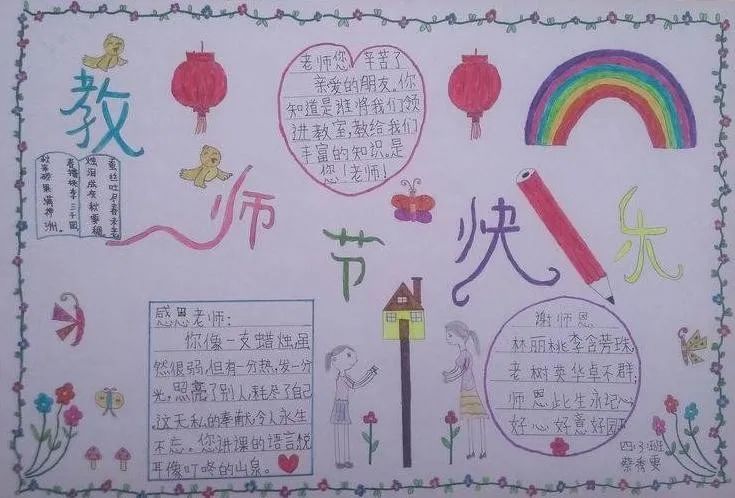 教师节快乐
老师您辛苦了
亲爱的朋友。你
知道是谁将我们领
进教室,教给我们
丰富的知识。是
您!老师!
春蚕吐丝尽春未老
烛泪成灰秋更稠
春播桃李三千圃
秋来硕果满神洲。
感恩老师:
你像一支蜡烛,虽
然很弱,但有一分热,发一分
光,照亮了别人,耗尽了自己
,这无私的奉献,令人永生
不忘。您讲课的语言,悦
耳像叮咚的山泉。
谢师恩
林丽桃李含芳珠,
老树英华卓不群;
师恩此生永记心
好心好意好园
四.3班
蔡秀